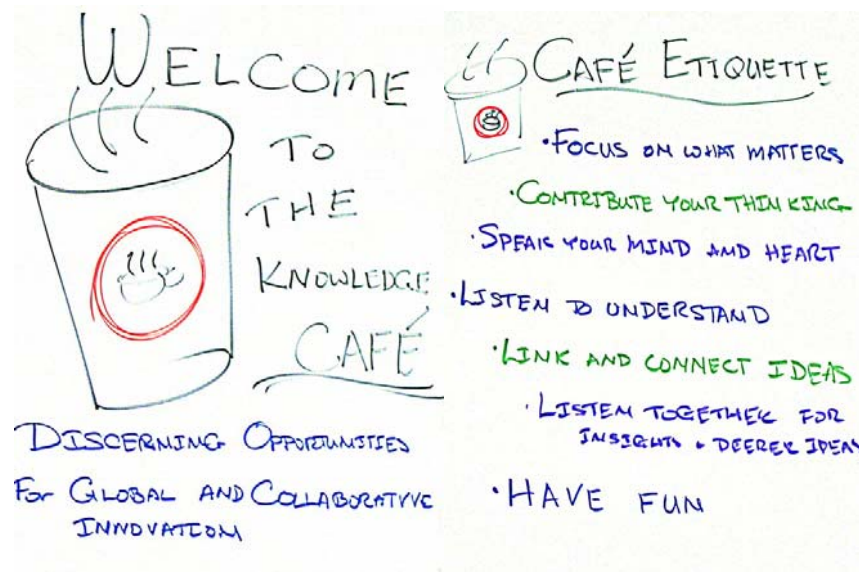 WELCOME
TO
THE
KNOWLEDGE
CAFÉ
DISCERNING OPPORTUNITIES
FOR GLOBAL AND COLLABORATIVE
INNOVATION
CAFÉ ETIQUETTE
·FOCUS ON WHAT MATTERS
·CONTRIBUTE YOUR THINKING
·SPEAK YOUR MIND AND HEART
·LISTEN TO UNDERSTAND
·LINK AND CONNECT IDEAS
·LISTEN TOGETHER FOR
INSIGHTS + DEEPER IDEAS
·HAVE FUN